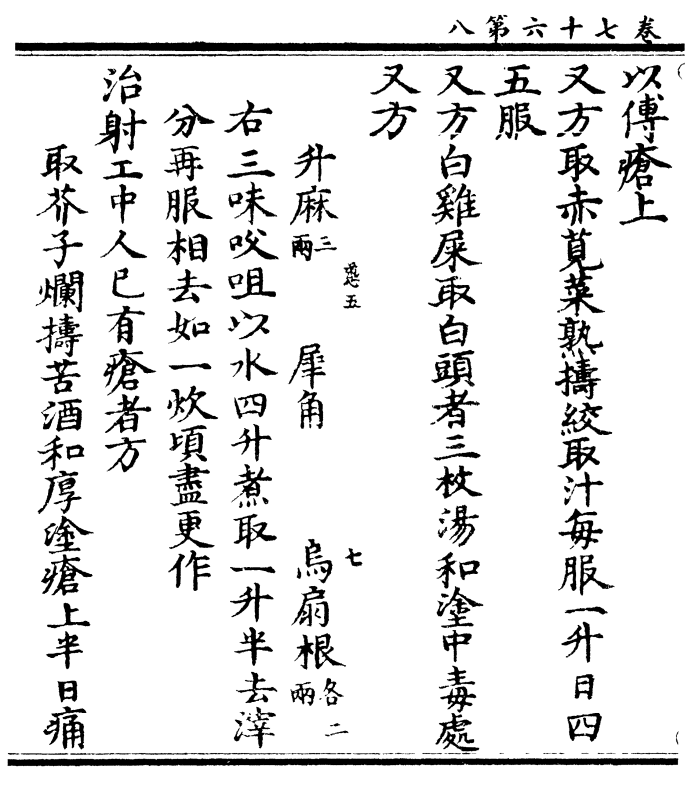 卷七十六第八
以傅瘡上
又方取赤莧菜熟擣絞取汁每服一升日四
五服
又方白雞屎取白頭者三枚湯和塗中毒處
又方
五 七
升麻三兩 犀角 烏扇根各二兩
右三味㕮咀以水四升煮取一升半去滓
分再服相去如一炊頃盡更作
治射工中人已有瘡者方
取芥子爛擣苦酒和厚塗瘡上半日痛